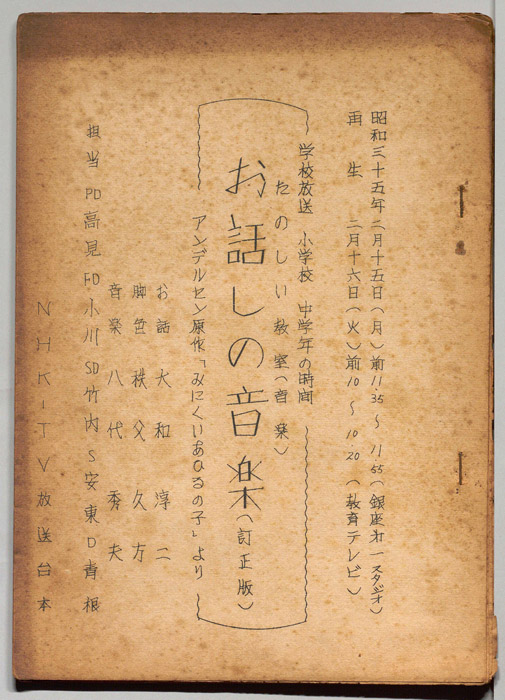 昭和三十五年二月十五日(月)前11.35〜11.55(銀座オ一スタジオ)
再生 二月十六日(火)前10〜10.20(教育テレビ)
学校放送 小学校 中学年の時間
たのしい教室(音楽)
お話しの音楽(訂正版)
アンデルセン原作「みにくいあひるの子」より
お話 大和淳二
脚色 秩父久方
音楽 八代秀夫
担当 PD高見 FD小川 SD竹内 S安東 D青根
NHK-TV放送台本